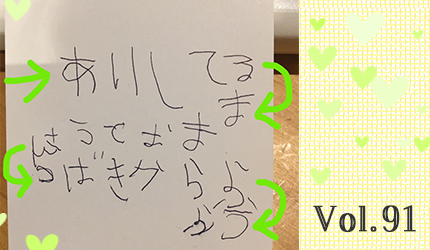 あいしてる
ま
うでおま
ばきから
う
Vol.91